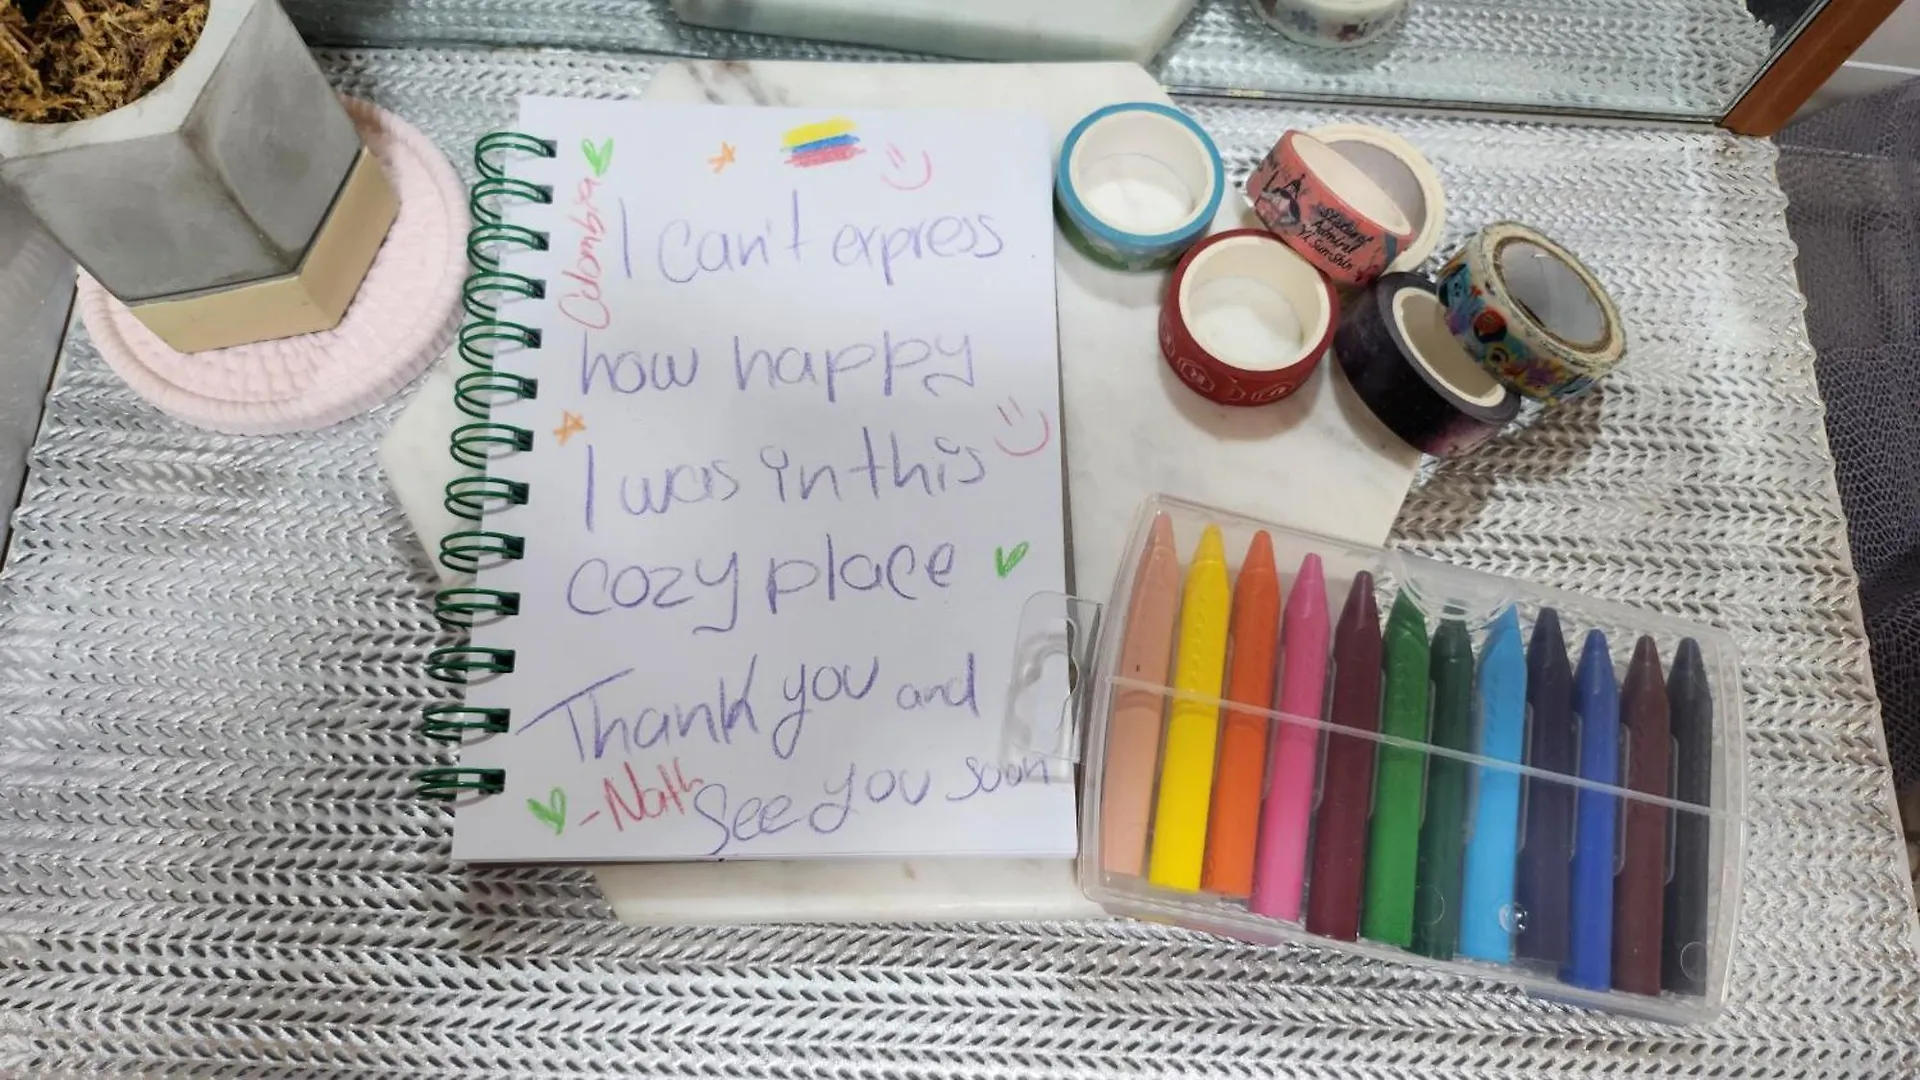 Colombia
I can't express
how happy
I was in this
cozy place
Thank you and
see you soon
-Nath
Steelbay
Admiral
Yi SunShin